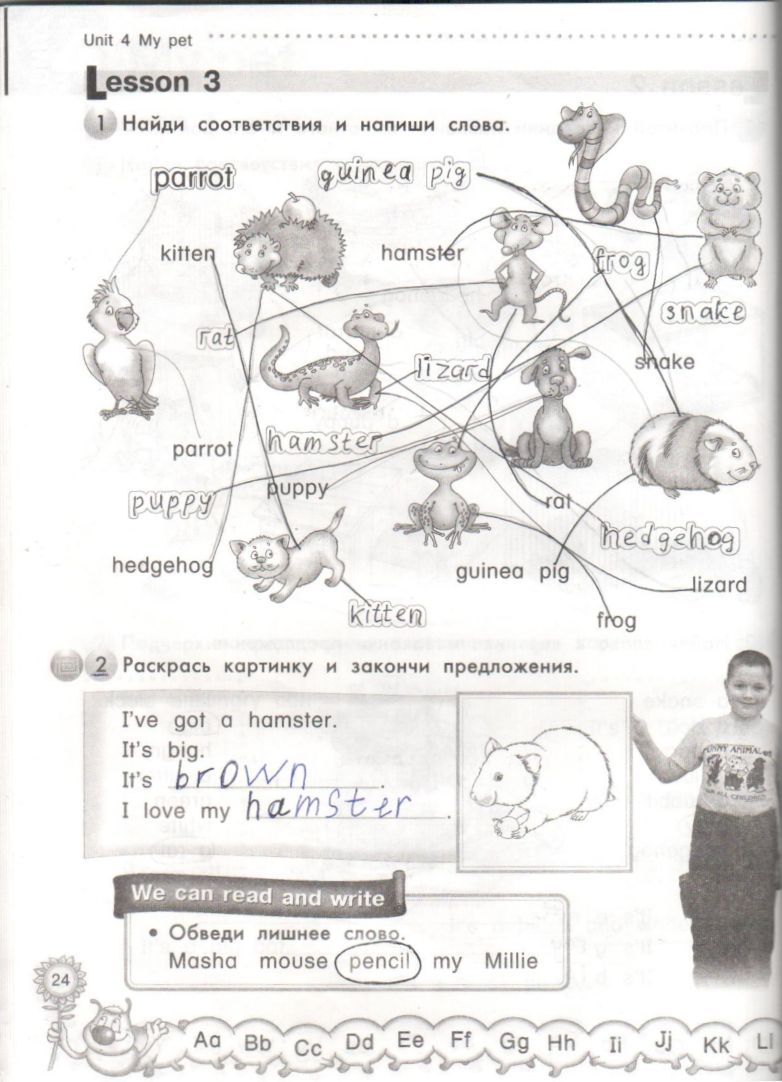 Unit 4 My pet
Lesson 3
1 Найди соответствия и напиши слова.
parrot guinea pig
kitten hamster frog
snake
rat
lizard snake
parrot hamster
puppy puppy rat
hedgehog
hedgehog guinea pig lizard
kitten frog
2 Раскрась картинку и закончи предложения.
I've got a hamster.
It's big.
It's brown.
I love my hamster.
FUNNY ANIMAL
FOR ALL CHILDREN
We can read and write
• Обведи лишнее слово.
Masha mouse pencil my Millie
24
Aa Bb Cc Dd Ee Ff Gg Hh Ii Jj Kk Ll